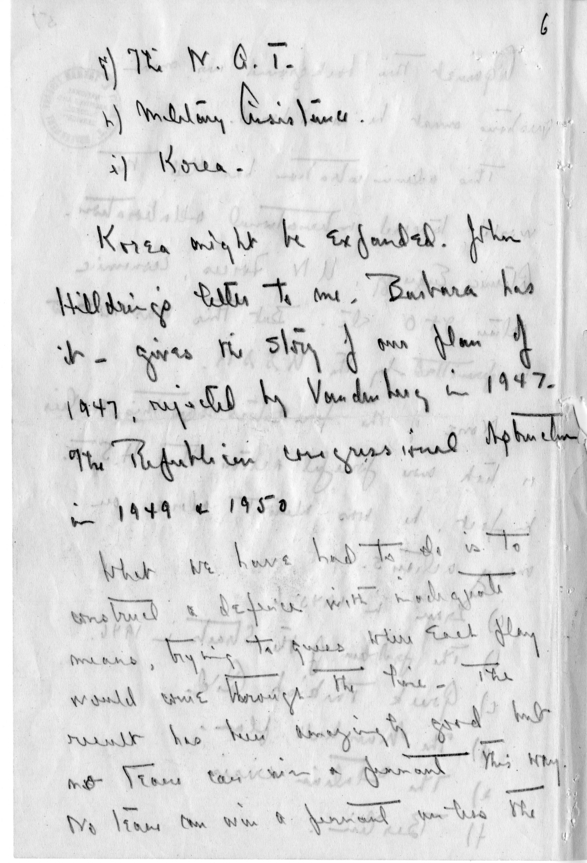 6
g) The N. A. T.
h) Military Assistance.
i) Korea.
Korea might be expanded. John
Hilldring's letter to me. Barbara has
it - gives the story of our plan of
1947, rejected by Vandenberg in 1947.
The Republican congressional obstruction
in 1949 & 1950
What we have had to do is to
construct a defence with inadequate
means, trying to guess where each play
would come through the line - The
result has been amazingly good but
no team can win a pennant this way.
No team can win a pennant unless the